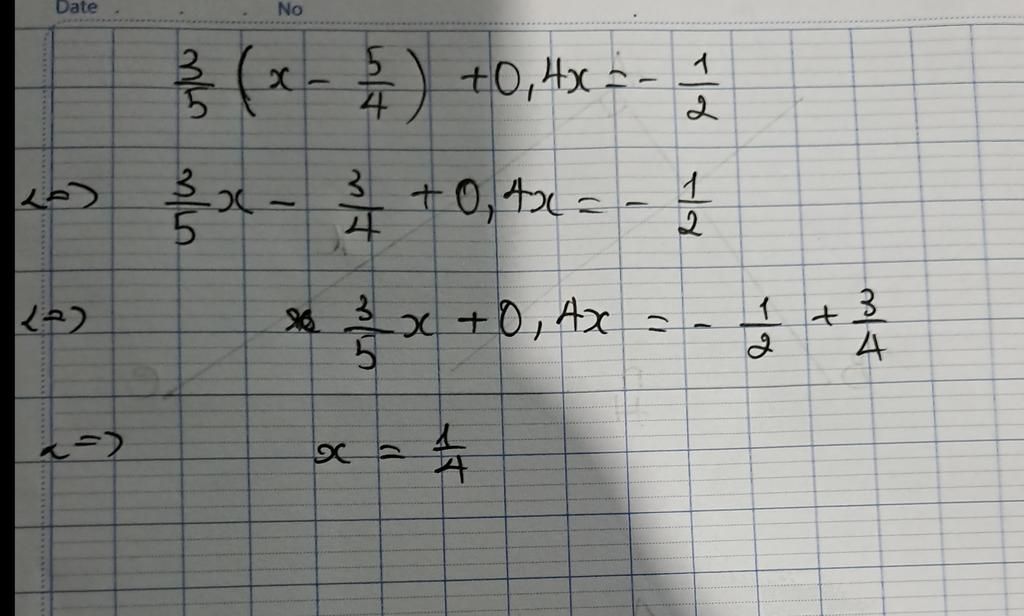 Date . . . No
3/5 (x - 5/4) + 0,4x = - 1/2
<=> 3/5 x - 3/4 + 0,4x = - 1/2
<=> 3/5 x + 0,4x = - 1/2 + 3/4
<=> x = 1/4